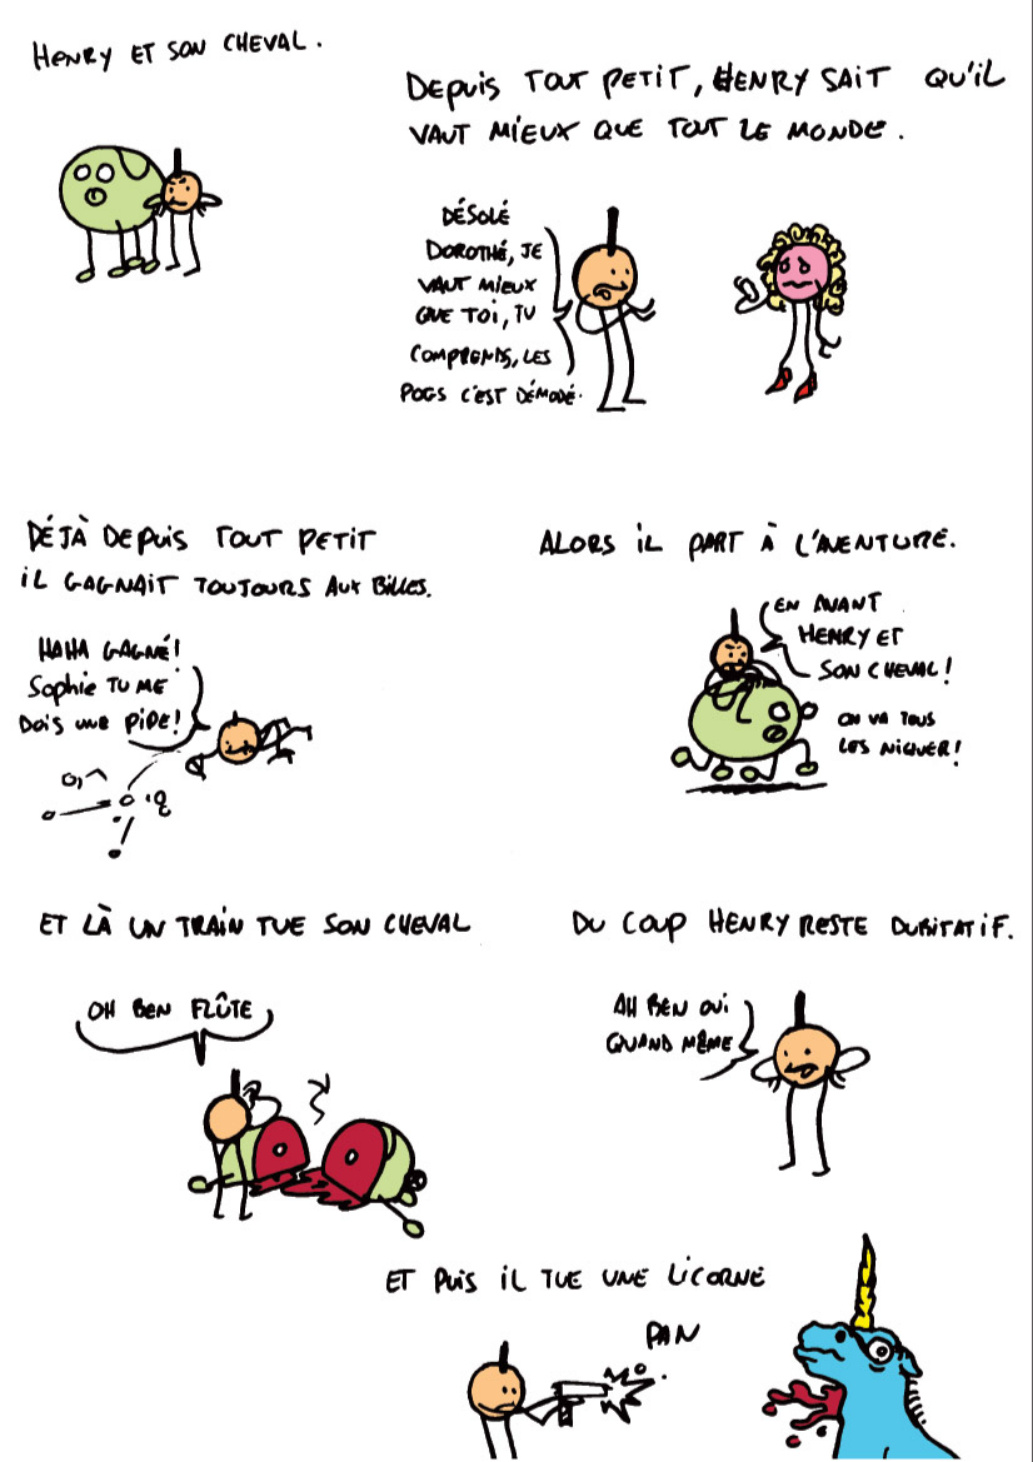 HENRY ET SON CHEVAL.
DEPUIS TOUT PETIT, HENRY SAIT QU'IL
VAUT MIEUX QUE TOUT LE MONDE.
DÉSOLÉ
DOROTHÉ, JE
VAUT MIEUX
QUE TOI, TU
COMPRENDS, LES
POGS C'EST DÉMODÉ.
DÉJÀ DEPUIS TOUT PETIT
IL GAGNAIT TOUJOURS AUX BILLES.
HAHA GAGNÉ!
Sophie TU ME
DOIS UNE PIPE!
ALORS IL PART À L'AVENTURE.
EN AVANT
HENRY ET
SON CHEVAL!
ON VA TOUS
LES NIQUER!
ET LÀ UN TRAIN TUE SON CHEVAL
OH BEN FLÛTE
DU COUP HENRY RESTE DUBITATIF.
AH BEN OUI
QUAND MÊME
ET PUIS IL TUE UNE LICORNE
PAN